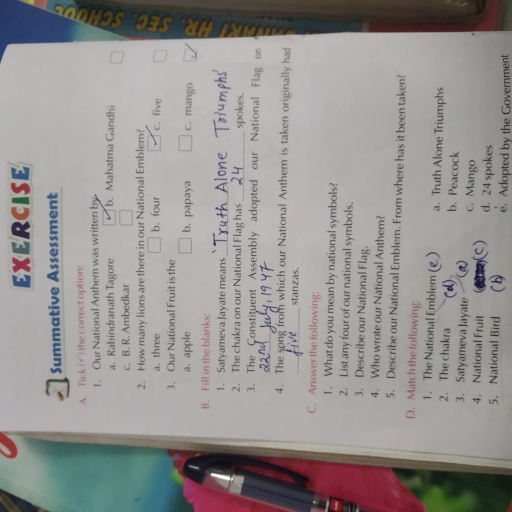 JANAKI HR. SEC. SCHOOL
EXERCISE
Summative Assessment
A. Tick (✓) the correct option:
1. Our National Anthem was written by
a. Rabindranath Tagore ✓ b. Mahatma Gandhi
c. B. R. Ambedkar
2. How many lions are there in our National Emblem?
a. three b. four ✓ c. five
3. Our National Fruit is the
a. apple b. papaya c. mango ✓
B. Fill in the blanks:
1. Satyameva Jayate means 'Truth Alone Triumphs'
2. The chakra on our National Flag has 24 spokes.
3. The Constituent Assembly adopted our National Flag on
22nd July, 1947
4. The song from which our National Anthem is taken originally had
five stanzas.
C. Answer the following:
1. What do you mean by national symbols?
2. List any four of our national symbols.
3. Describe our National Flag.
4. Who wrote our National Anthem?
5. Describe our National Emblem. From where has it been taken?
D. Match the following:
1. The National Emblem (e) a. Truth Alone Triumphs
2. The chakra (d) b. Peacock
3. Satyameva Jayate (a) c. Mango
4. National Fruit (c) d. 24 spokes
5. National Bird (b) e. Adopted by the Government